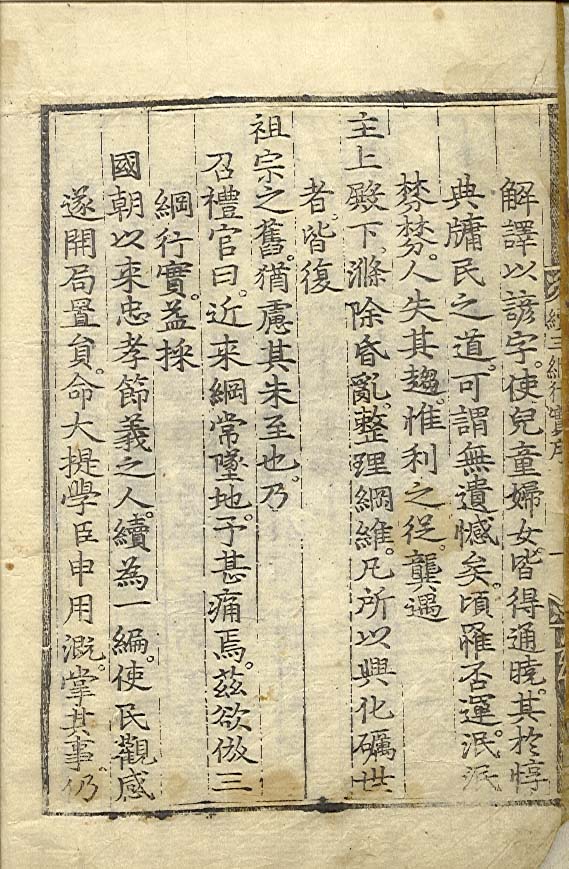 續三綱行實序
一
解譯以諺字。使兒童婦女皆得通曉。其於惇
典牗民之道。可謂無遺憾矣。頃罹否運。泯泯
棼棼。人失其趨。惟利之從。龔遇
主上殿下。滌除昏亂。整理綱維。凡所以興化礪世
者。皆復
祖宗之舊。猶慮其未至也。乃
召禮官曰。近來綱常墜地。予甚痛焉。茲欲倣三
綱行實。益採
國朝以來忠孝節義之人。續為一編。使民觀感
遂開局置貟。命大提學臣申用溉。掌其事。仍